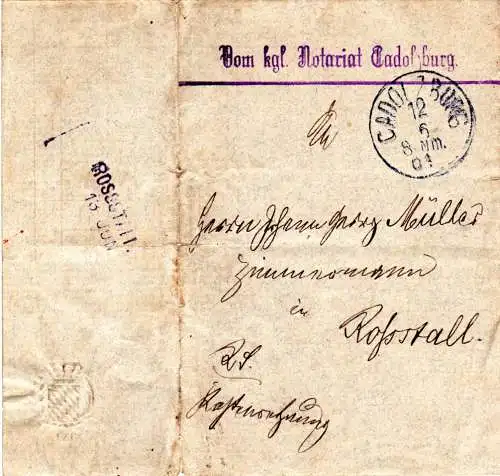 Vom kgl. Notariat Cadolzburg.
CADOLZBURG
12
6
8 Nm.
01
ROSSSTALL
13 JUN
An
Herrn Johann Georg Müller
Zimmermann
in
Roßstall.
R.S.
Kostenrechnung